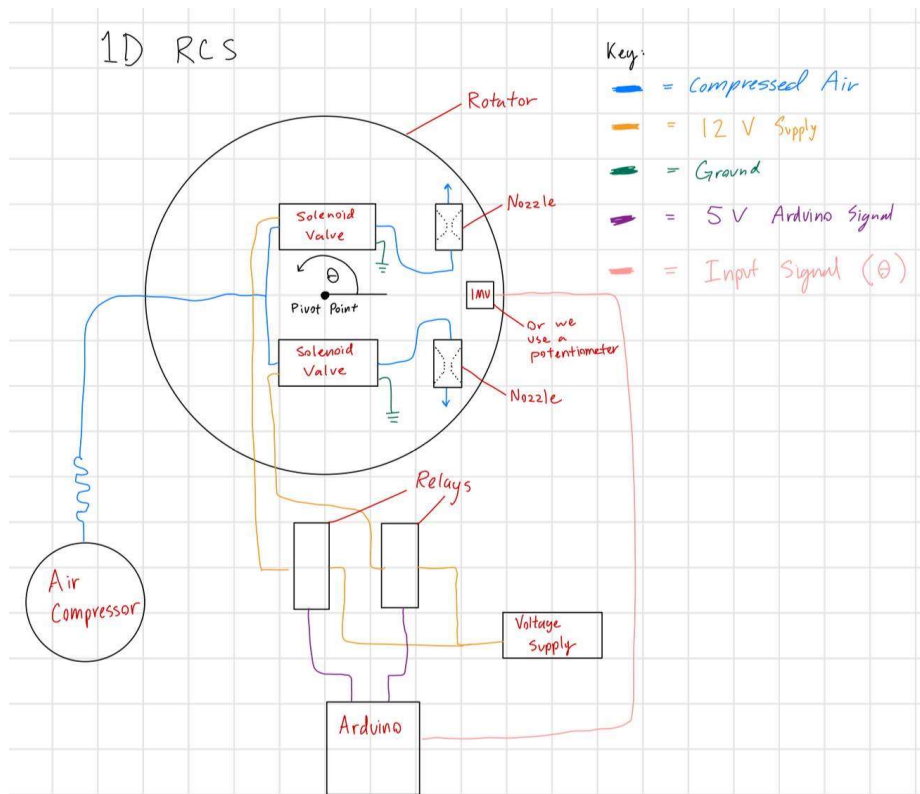 1D RCS
Key:
= Compressed Air
= 12 V Supply
= Ground
= 5V Arduino Signal
= Input Signal (θ)
Rotator
Nozzle
Solenoid
Valve
θ
Pivot Point
IMU
Or we
use a
potentiometer
Solenoid
Valve
Nozzle
Relays
Air
Compressor
Voltage
Supply
Arduino